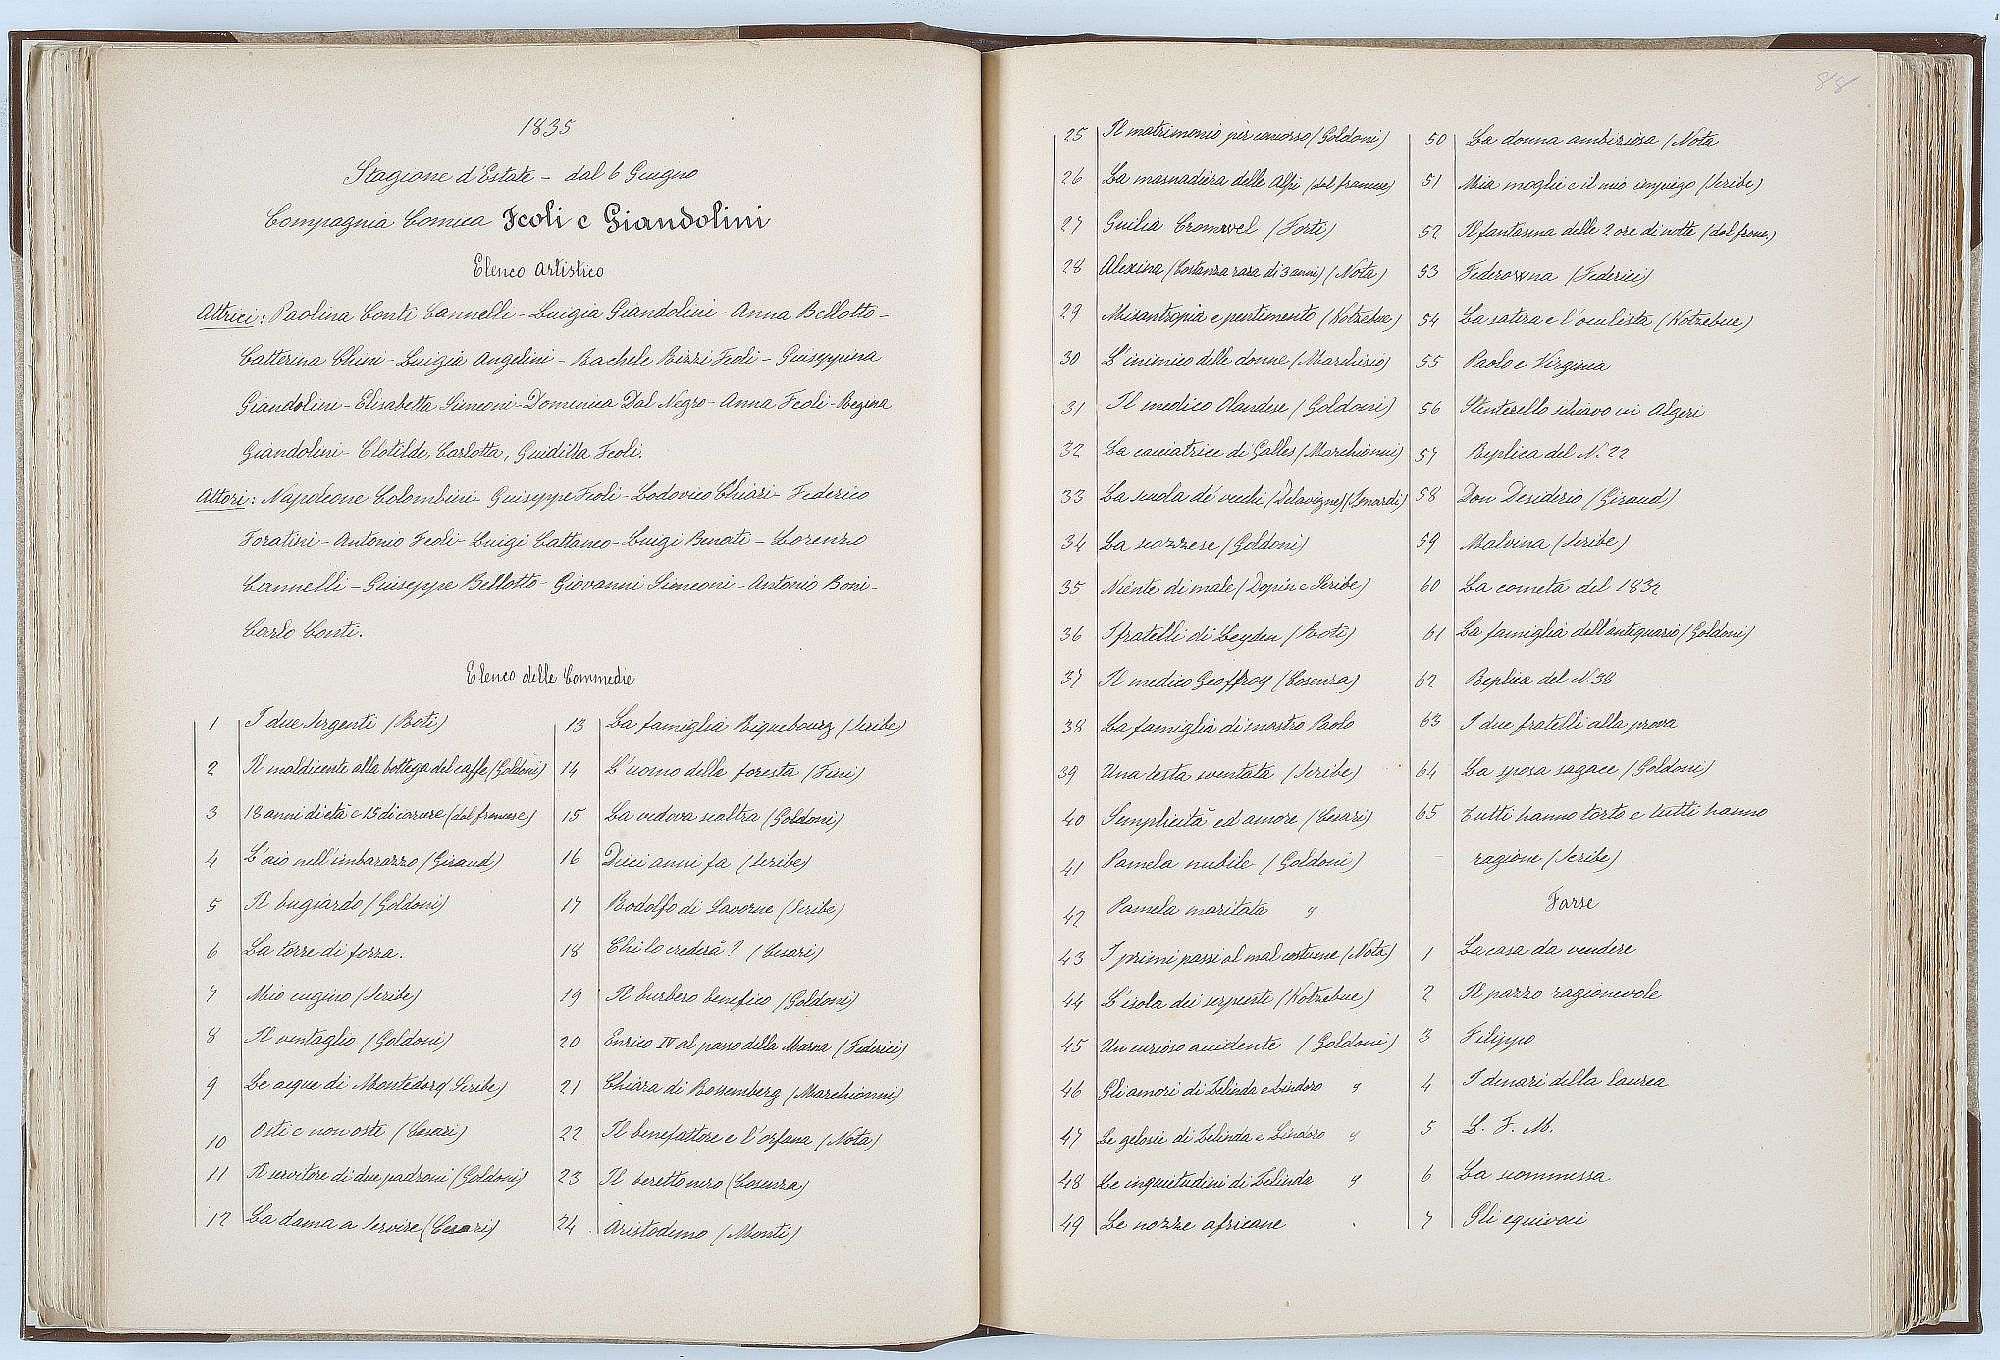 1835
Stagione d'Estate - dal 6 Giugno
Compagnia Comica Feoli e Giandolini
Elenco Artistico
Attrici: Paolina Conti Cannelli - Luigia Giandolini - Anna Bellotto -
Catterina Chini - Luigia Angelini - Rachele Bizzi Feoli - Giuseppina
Giandolini - Elisabetta Simeoni - Domenica Dal Negro - Anna Feoli - Regina
Giandolini - Clotilde, Carlotta, Guiditta Feoli.
Attori: Napoleone Colombini - Guiseppe Feoli - Lodovico Chiari - Federico
Foratini - Antonio Feoli - Luigi Cattaneo - Luigi Benati - Lorenzo
Cannelli - Giuseppe Bellotto - Giovanni Simeoni - Antonio Boni -
Carlo Conti.
Elenco delle Commedie
1 I due sergenti (Roti)
2 Il maldicente alla bottega del caffe (Goldoni)
3 18 anni di età e 15 di carcere (dal francese)
4 L'aio nell'imbarazzo (Giraud)
5 Il bugiardo (Goldoni)
6 La torre di forza.
7 Mio cugino (Scribe)
8 Il ventaglio (Goldoni)
9 Le acque di Montedor (Scribe)
10 Osti e non osti (Cesari)
11 Il servitore di due padroni (Goldoni)
12 La dama a servire (Cesari)
13 La famiglia Riquebourg (Scribe)
14 L'uomo delle foresta (Fini)
15 La vedova scaltra (Goldoni)
16 Dieci anni fa (Scribe)
17 Rodolfo di Saverne (Scribe)
18 Chi lo crederà? (Cesari)
19 Il burbero benefico (Goldoni)
20 Enrico IV al passo della Marna (Federici)
21 Chiara di Rossemberg (Marchionni)
22 Il benefattore e l'orfana (Nota)
23 Il beretto nero (Cosenza)
24 Aristodemo (Monti)
88
25 Il matrimonio per concorso (Goldoni)
26 La masnadiera delle Alpi (dal francese)
27 Guilia Cromwel (Forti)
28 Alexina (Costanza rara di 3 anni) (Nota)
29 Misantropia e pentimento (Kotzebue)
30 L'inimico delle donne (Marchisio)
31 Il medico Olandese (Goldoni)
32 La cacciatrice di Galles (Marchionni)
33 La scuola de' vecchi (Delavigne)
34 La scozzese (Goldoni)
35 Niente di male (Dopin e Scribe)
36 I fratelli di Leyden (Roti)
37 Il medico Geoffroy (Cosenza)
38 La famiglia di mastro Paolo
39 Una testa sventata (Scribe)
40 Semplicità ed amore (Cesari)
41 Pamela nubile (Goldoni)
42 Pamela maritata "
43 I primi passi al mal costume (Nota)
44 L'isola dei serpenti (Kotzebue)
45 Un curioso accidente (Goldoni)
46 Gli amori di Zelinda e Lindoro "
47 Le gelosie di Zelinda e Lindoro "
48 Le inquietudini di Zelinda "
49 Le nozze africane
50 La donna ambiziosa (Nota
51 Mia moglie e il mio impiego (Scribe)
52 Il fantasma delle 2 ore di notte (dal franc.)
53 Fedrowna (Federici)
54 La satira e l'oculista (Kotzebue)
55 Paolo e Virginia
56 Stenterello schiavo in Algeri
57 Replica del N. 22
58 Don Desiderio (Giraud)
59 Malvina (Scribe)
60 La cometa del 1832
61 La famiglia dell'antiquario (Goldoni)
62 Replica del N. 38
63 I due fratelli alla prova
64 La sposa sagace (Goldoni)
65 Tutti hanno torto e tutti hanno
ragione (Scribe)
Farse
1 La casa da vendere
2 Il pazzo ragionevole
3 Filippo
4 I denari della laurea
5 L. F. M.
6 La scommessa
7 Gli equivoci